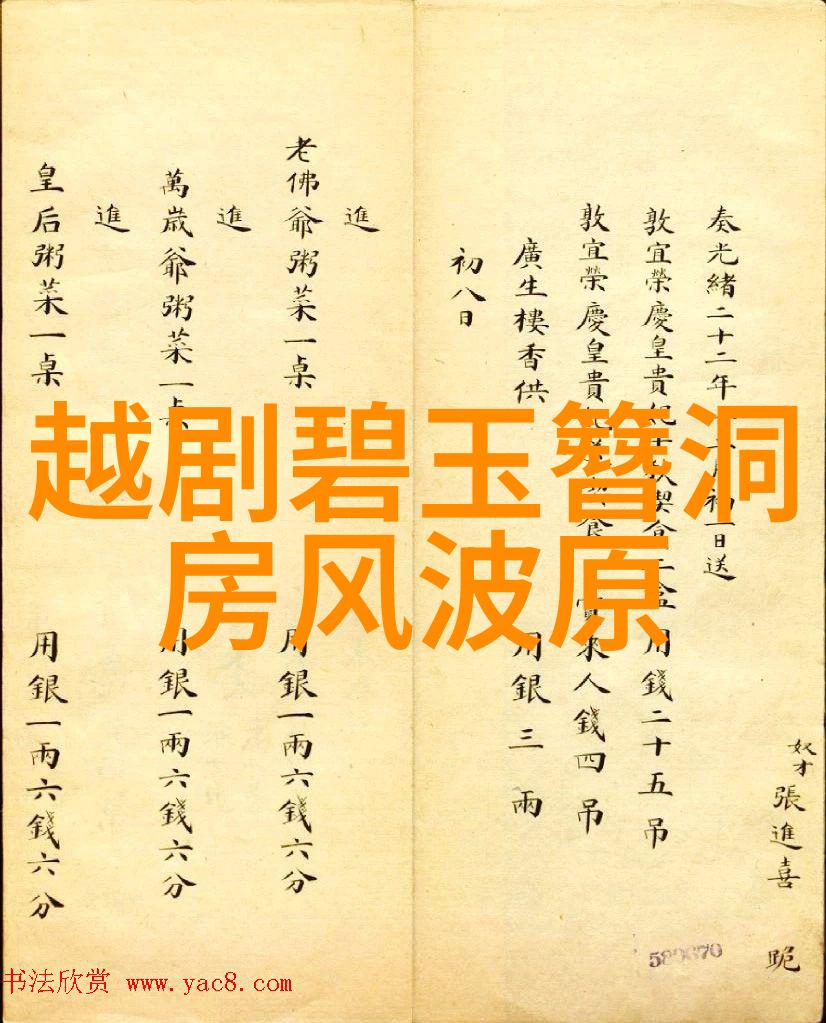 奴才張進喜 跪
奏光緒二十二年初一日送
敦宜榮慶皇貴用錢二十五吊
敦宜榮慶皇貴來人錢四吊
廣生樓香供 用銀三兩
初八日
進
老佛爺粥菜一桌 用銀一兩六錢六分
進
萬歲爺粥菜一桌 用銀一兩六錢六分
進
皇后粥菜一桌 用銀一兩六錢六分
越剧碧玉簪洞
房风波原
589670
书法欣赏 www.yac8.com